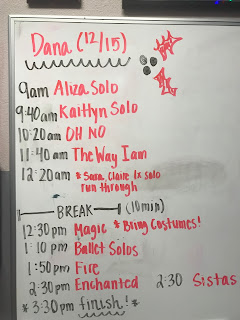 Dana (12/15)
9am Aliza Solo
9:40am Kaitlyn Solo
10:20am OH NO
11:40am The Way I am
12:20am * Sara, Claire 1x solo
run through
BREAK (10min)
12:30pm Magic * Bring Costumes!
1:10pm Ballet Solos
1:50pm Fire
2:30pm Enchanted 2:30 Sistas
* 3:30pm finish! *